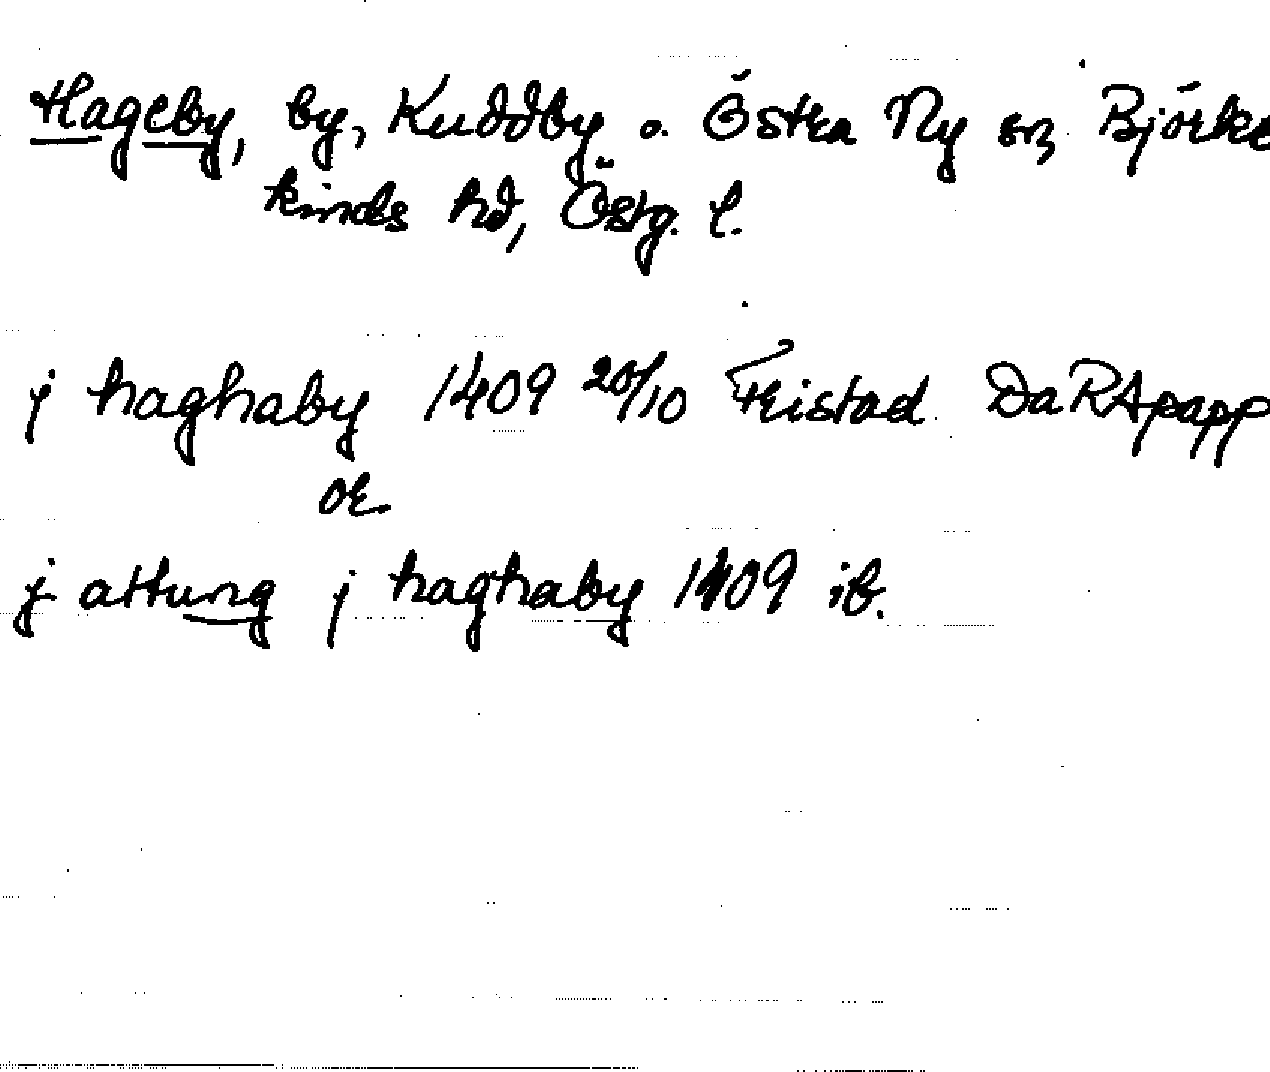 Hageby, by, Kuddby o. Östra Ny snr Björke
kinds hd, Östg. l.
j haghaby 1409 20/10 Fristad DaRApapp
or
j attung j haghaby 1409 ib.